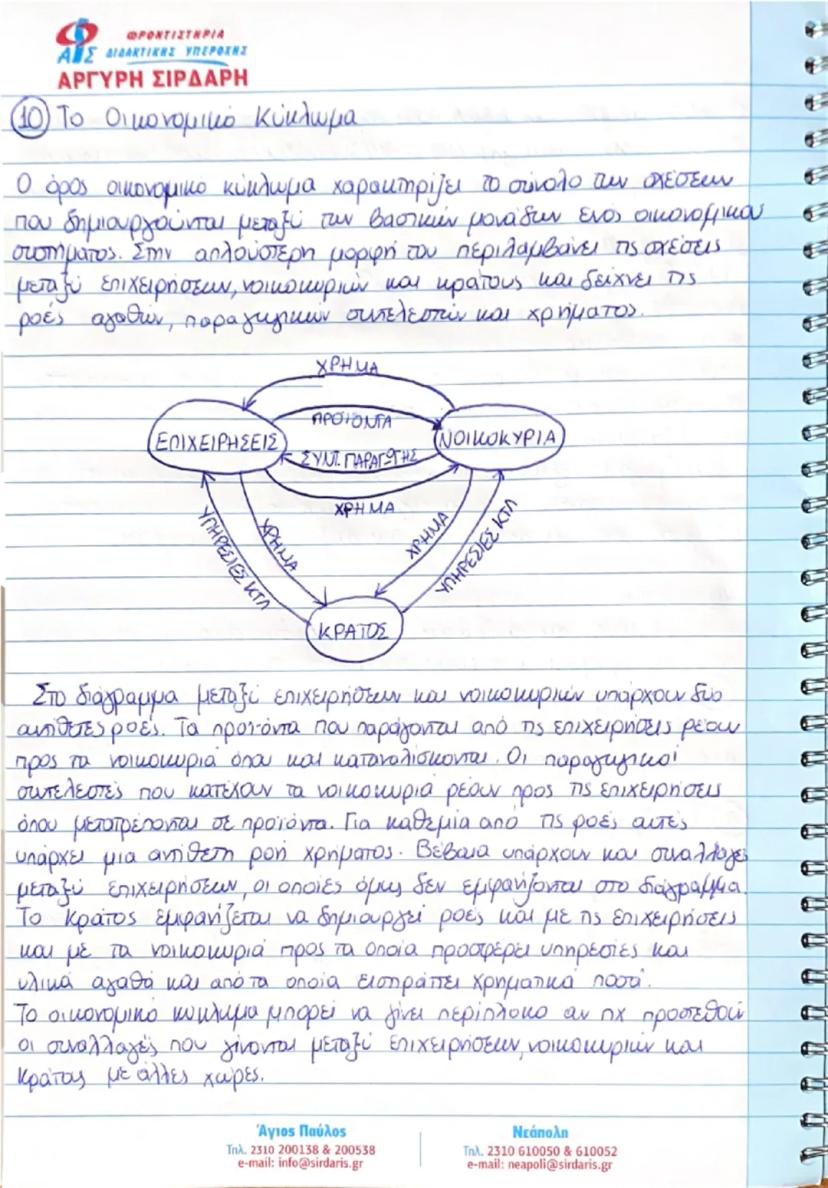 ΦΡΟΝΤΙΣΤΗΡΙΑ
ΑΣ ΔΙΔΑΚΤΙΚΗΣ ΥΠΕΡΟΧΗΣ
ΑΡΓΥΡΗ ΣΙΡΔΑΡΗ
10 Το Οικονομικό Κύκλωμα
Ο όρος οικονομικό κύκλωμα χαρακτηρίζει το σύνολο των σχέσεων
που δημιουργούνται μεταξύ των βασικών μονάδων ενός οικονομικού
συστήματος. Στην απλούστερη μορφή του περιλαμβάνει τις σχέσεις
μεταξύ επιχειρήσεων, νοικοκυριών και κράτους και δείχνει τις
ροές αγαθών, παραγωγικών συντελεστών και χρήματος.
ΧΡΗΜΑ
ΠΡΟΪΟΝΤΑ
ΕΠΙΧΕΙΡΗΣΕΙΣ
ΝΟΙΚΟΚΥΡΙΑ
ΣΥΝΤ. ΠΑΡΑΓΩΓΗΣ
ΧΡΗΜΑ
ΥΠΗΡΕΣΙΕΣ ΚΤΛ
ΧΡΗΜΑ
ΧΡΗΜΑ
ΥΠΗΡΕΣΙΕΣ ΚΤΛ
ΚΡΑΤΟΣ
Στο διάγραμμα μεταξύ επιχειρήσεων και νοικοκυριών υπάρχουν δύο
αντίθετες ροές. Τα προϊόντα που παράγονται από τις επιχειρήσεις ρέουν
προς τα νοικοκυριά όπου και καταναλίσκονται. Οι παραγωγικοί
συντελεστές που κατέχουν τα νοικοκυριά ρέουν προς τις επιχειρήσεις
όπου μετατρέπονται σε προϊόντα. Για καθεμία από τις ροές αυτές
υπάρχει μια αντίθετη ροή χρήματος. Βέβαια υπάρχουν και συναλλαγές
μεταξύ επιχειρήσεων, οι οποίες όμως δεν εμφανίζονται στο διάγραμμα.
Το Κράτος εμφανίζεται να δημιουργεί ροές και με τις επιχειρήσεις
και με τα νοικοκυριά προς τα οποία προσφέρει υπηρεσίες και
υλικά αγαθά και από τα οποία εισπράττει χρηματικά ποσά.
Το οικονομικό κύκλωμα μπορεί να γίνει περίπλοκο αν πχ προστεθούν
οι συναλλαγές που γίνονται μεταξύ επιχειρήσεων, νοικοκυριών και
Κράτους με άλλες χώρες.
Άγιος Παύλος
Τηλ. 2310 200138 & 200538
e-mail: info@sirdaris.gr
Νεάπολη
Τηλ. 2310 610050 & 610052
e-mail: neapoli@sirdaris.gr